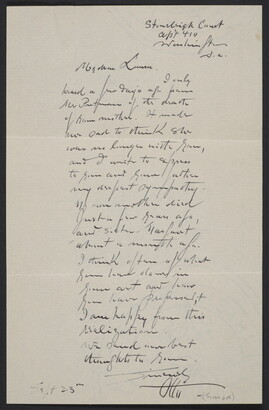 Stoneleigh Court
Apt 410
Washington
D.C.
My dear
I only
heard a few days ago from
of the death
of your mother. It made
me sad to think she
was no longer with you,
and I write to express
to you and yours
my deepest sympathy.
My own mother died
just a few years ago,
and sister Margaret
about a month ago.
I think often of what
you have done in
your art and how
you have
I am happy from this
realization.
We send our best
thoughts to you.
Sincerely